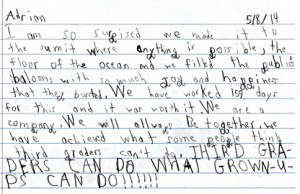 Adrien 5/8/14
I am so surpised we made it to
the sumit where anything is possible, the
floor of the ocean and we filled the public
baloons with so much joy and happines
that they busted. We have worked 155 days
for this and it was worth it. We are a
company. We will allways be together. we
have achieved what some people think
third graders can't do. THIRD GRA-
DERS CAN DO WHAT GROWN-U-
PS CAN DO!!!!!!